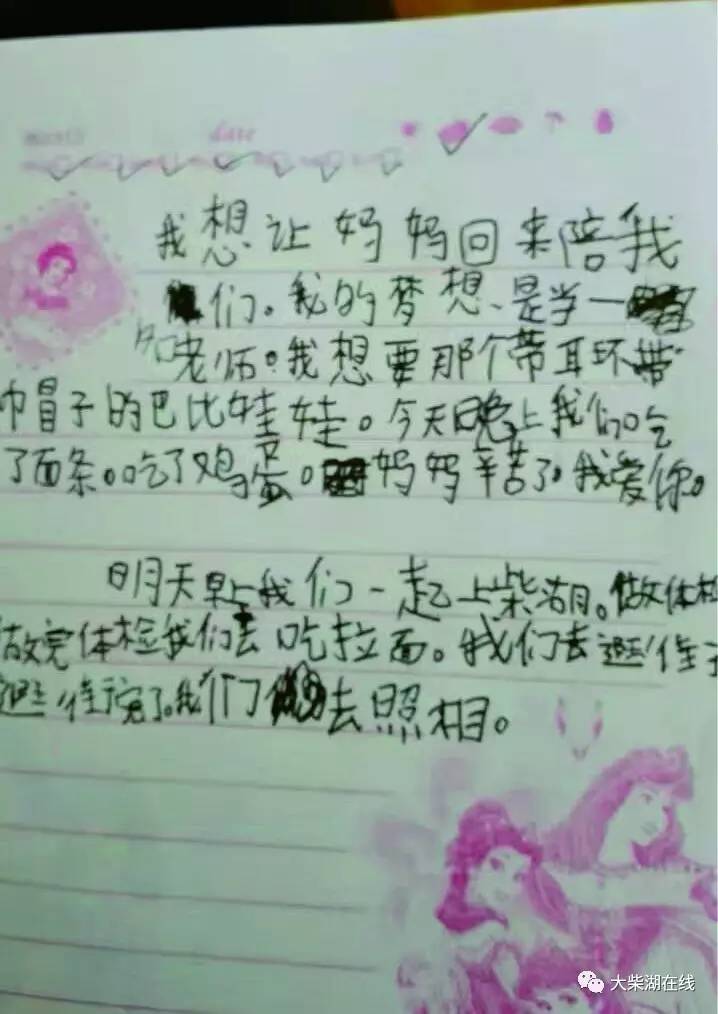 month date
我想让妈妈回来陪我
们。我的梦想、是当一
名老师。我想要那个带耳环带
巾冒子的巴比娃娃。今天晚上我们吃
了面条。吃了鸡蛋。妈妈辛苦了。我爱你。
明天早上我们一起上柴湖。做体检
做完体检我们去吃拉面。我们去
完了。我们去照相。
大柴湖在线